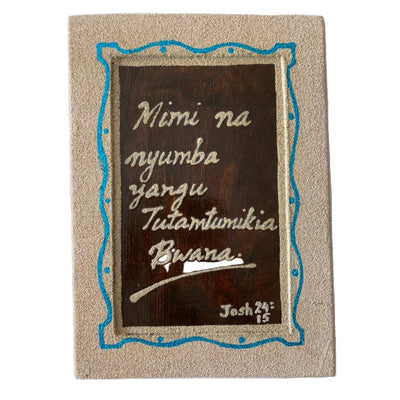 Mimi na
nyumba
yangu
Tutamtumikia
Bwana.
Josh 24:
15